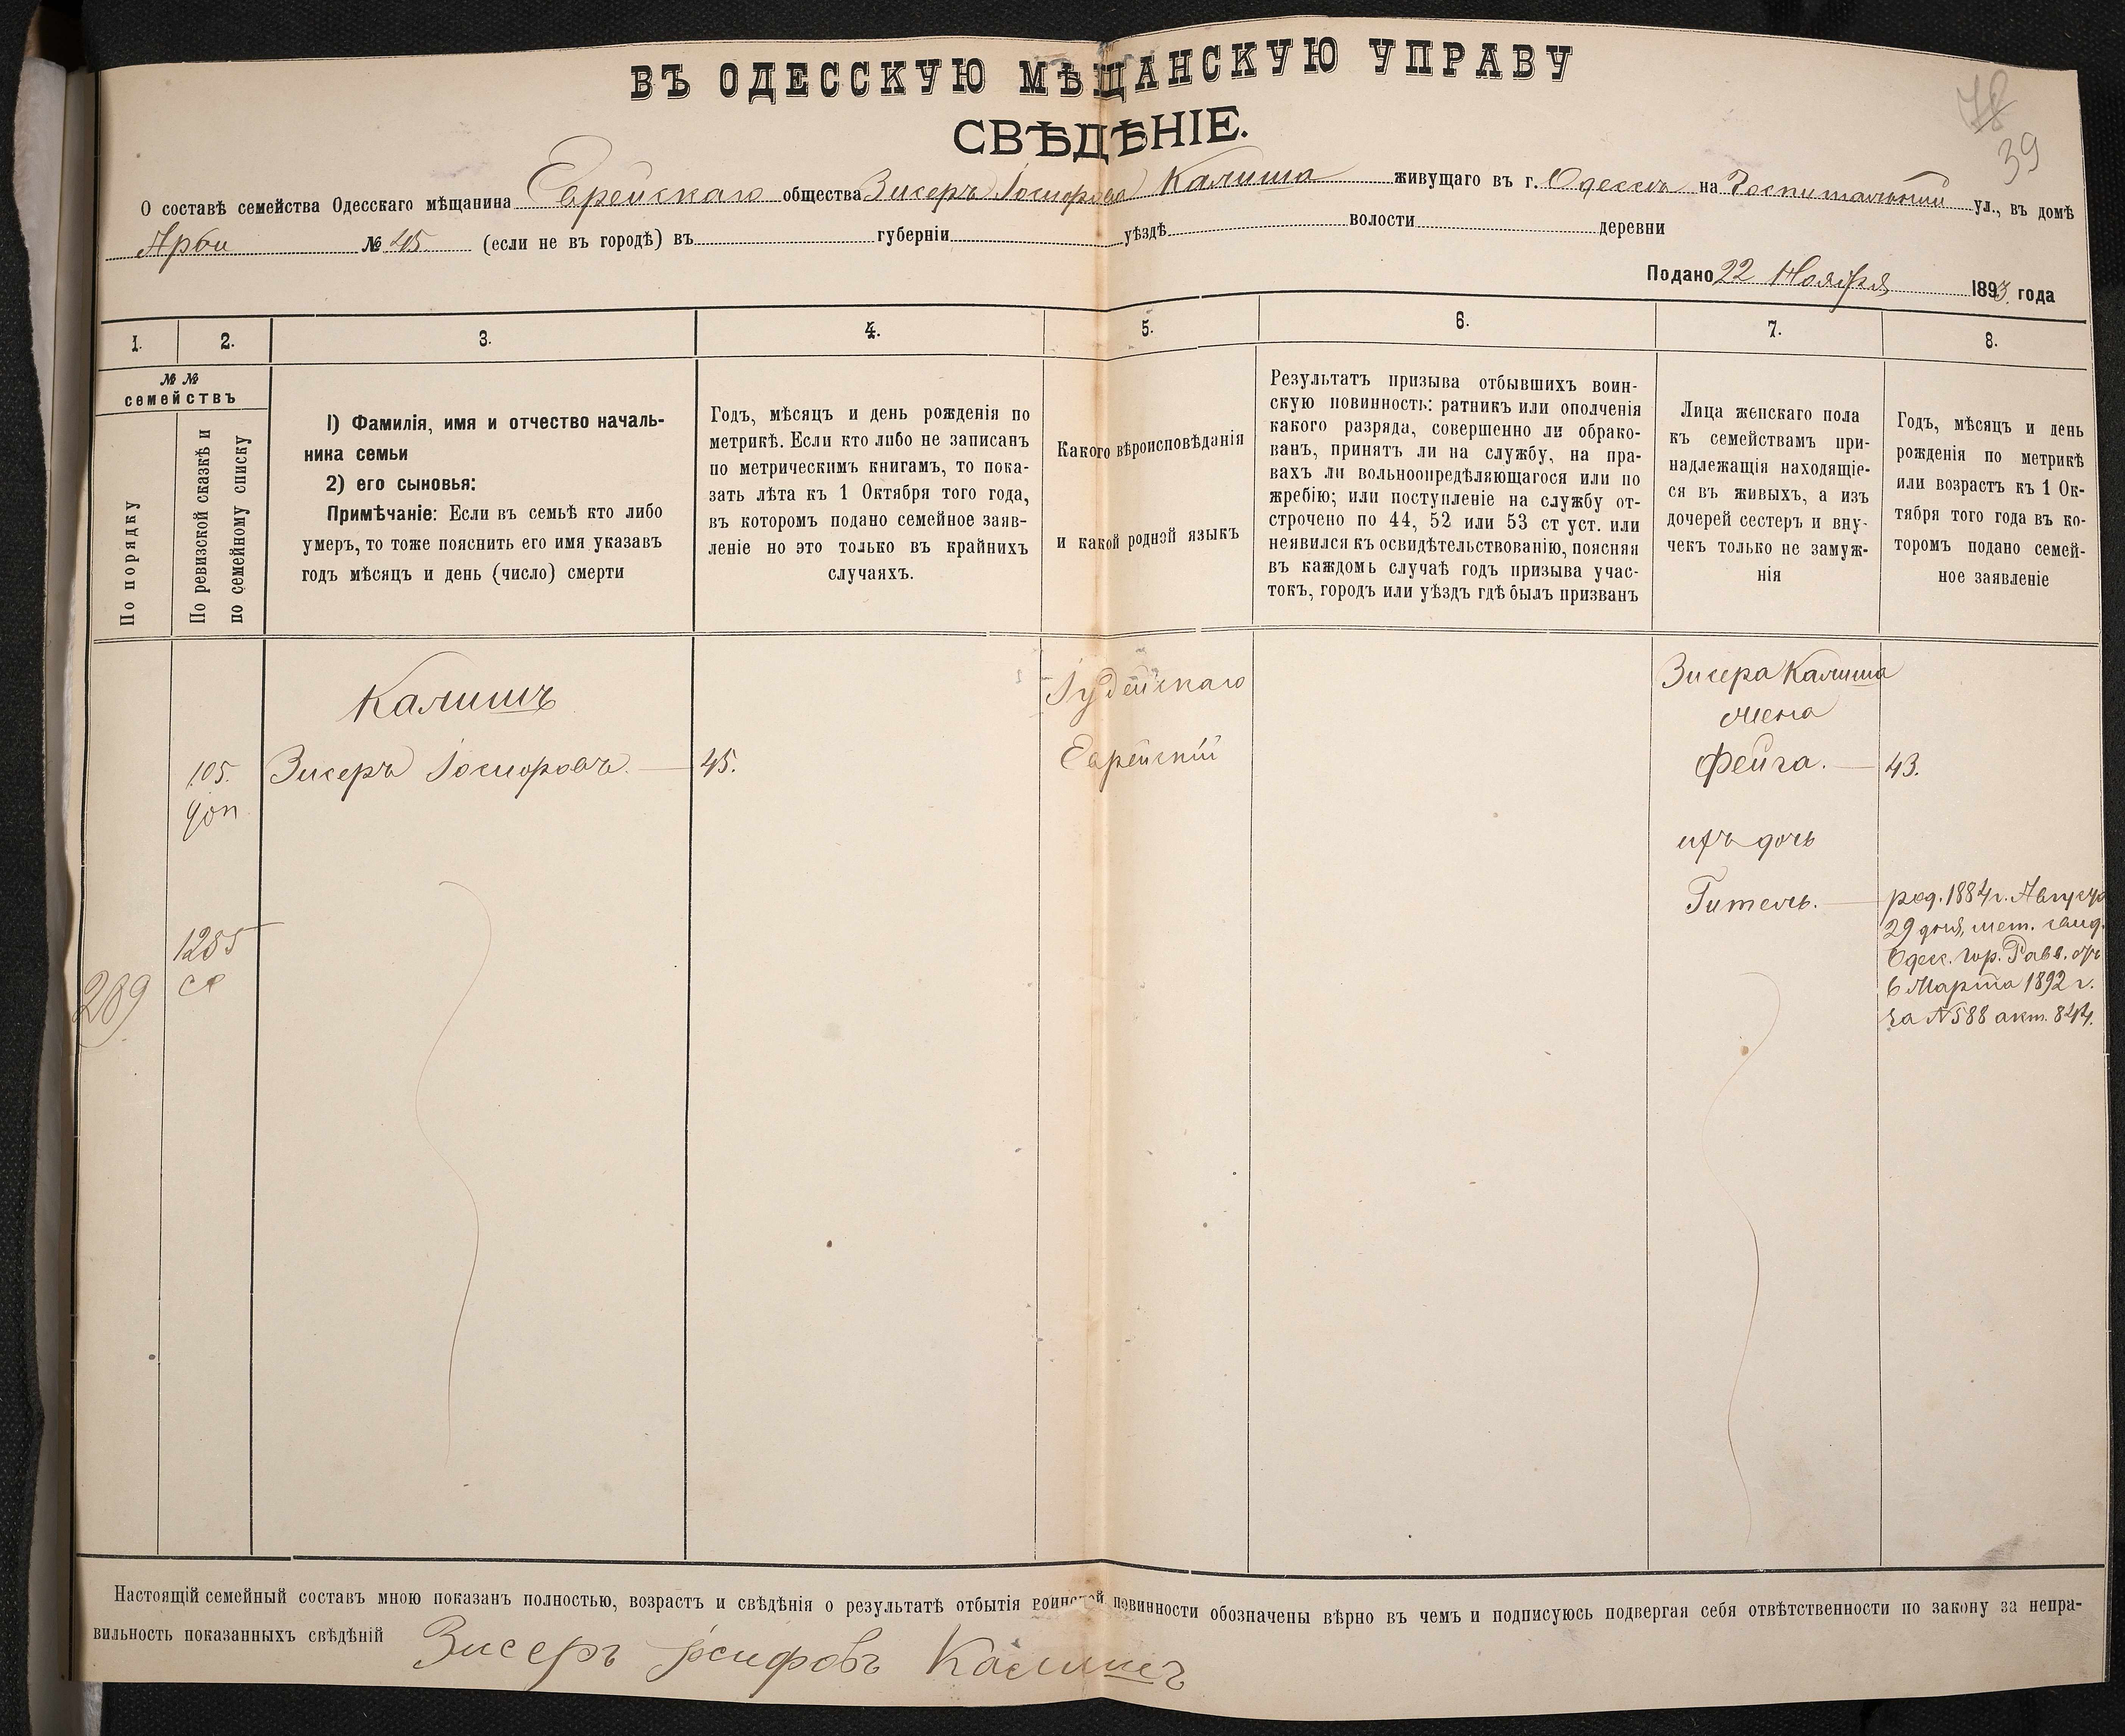 ВЪ ОДЕССКУЮ МѢЩАНСКУЮ УПРАВУ
СВѢДѢНІЕ.
39
О составѣ семейства Одесскаго мѣщанина Еврейскаго общества Зисеръ Іосифова Калиша живущаго въ г. Одессѣ на Госпитальной ул., въ домѣ
№ 45 (если не въ городѣ) въ губерніи уѣздѣ волости деревни
Подано 22 Ноября 1893 года
1. 2. 3. 4. 5. 6. 7. 8.
№ №
семействъ
По порядку
По ревизской сказкѣ и
по семейному списку
1) Фамилія, имя и отчество началь-
ника семьи
2) его сыновья:
Примѣчаніе: Если въ семьѣ кто либо
умеръ, то тоже пояснить его имя указавъ
годъ мѣсяцъ и день (число) смерти
Годъ, мѣсяцъ и день рожденія по
метрикѣ. Если кто либо не записанъ
по метрическимъ книгамъ, то пока-
зать лѣта къ 1 Октября того года,
въ которомъ подано семейное заяв-
леніе но это только въ крайнихъ
случаяхъ.
Какого вѣроисповѣданія
и какой родной языкъ
Результатъ призыва отбывшихъ воин-
скую повинность: ратникъ или ополченія
какого разряда, совершенно ли обрако-
ванъ, принятъ ли на службу, на пра-
вахъ ли вольноопредѣляющагося или по
жребію; или поступленіе на службу от-
строчено по 44, 52 или 53 ст уст. или
неявился къ освидѣтельствованію, поясняя
въ каждомъ случаѣ годъ призыва учас-
токъ, городъ или уѣздъ гдѣ былъ призванъ
Лица женскаго пола
къ семействамъ при-
надлежащія находящіе-
ся въ живыхъ, а изъ
дочерей сестеръ и вну-
чекъ только не замуж-
нія
Годъ, мѣсяцъ и день
рожденія по метрикѣ
или возрастъ къ 1 Ок-
тября того года въ ко-
торомъ подано семей-
ное заявленіе
Калишъ
Іудейскаго
Зисера Калиша
жена
105. Зисеръ Іосифовъ. 45. Еврейскій Фейга. 43.
доп
ихъ дочь
Гитель. род. 1884 г. Августа
29 дня, мет. свид.
Одес. гор. Равв. отъ
6 Марта 1892 г.
за N588 акт. 844.
1285
289
Настоящій семейный составъ мною показанъ полностью, возрастъ и свѣдѣнія о результатѣ отбытія воинской повинности обозначены вѣрно въ чемъ и подписуюсь подвергая себя отвѣтственности по закону за непра-
вильность показанныхъ свѣдѣній Зисеръ Іосифовъ Калишъ